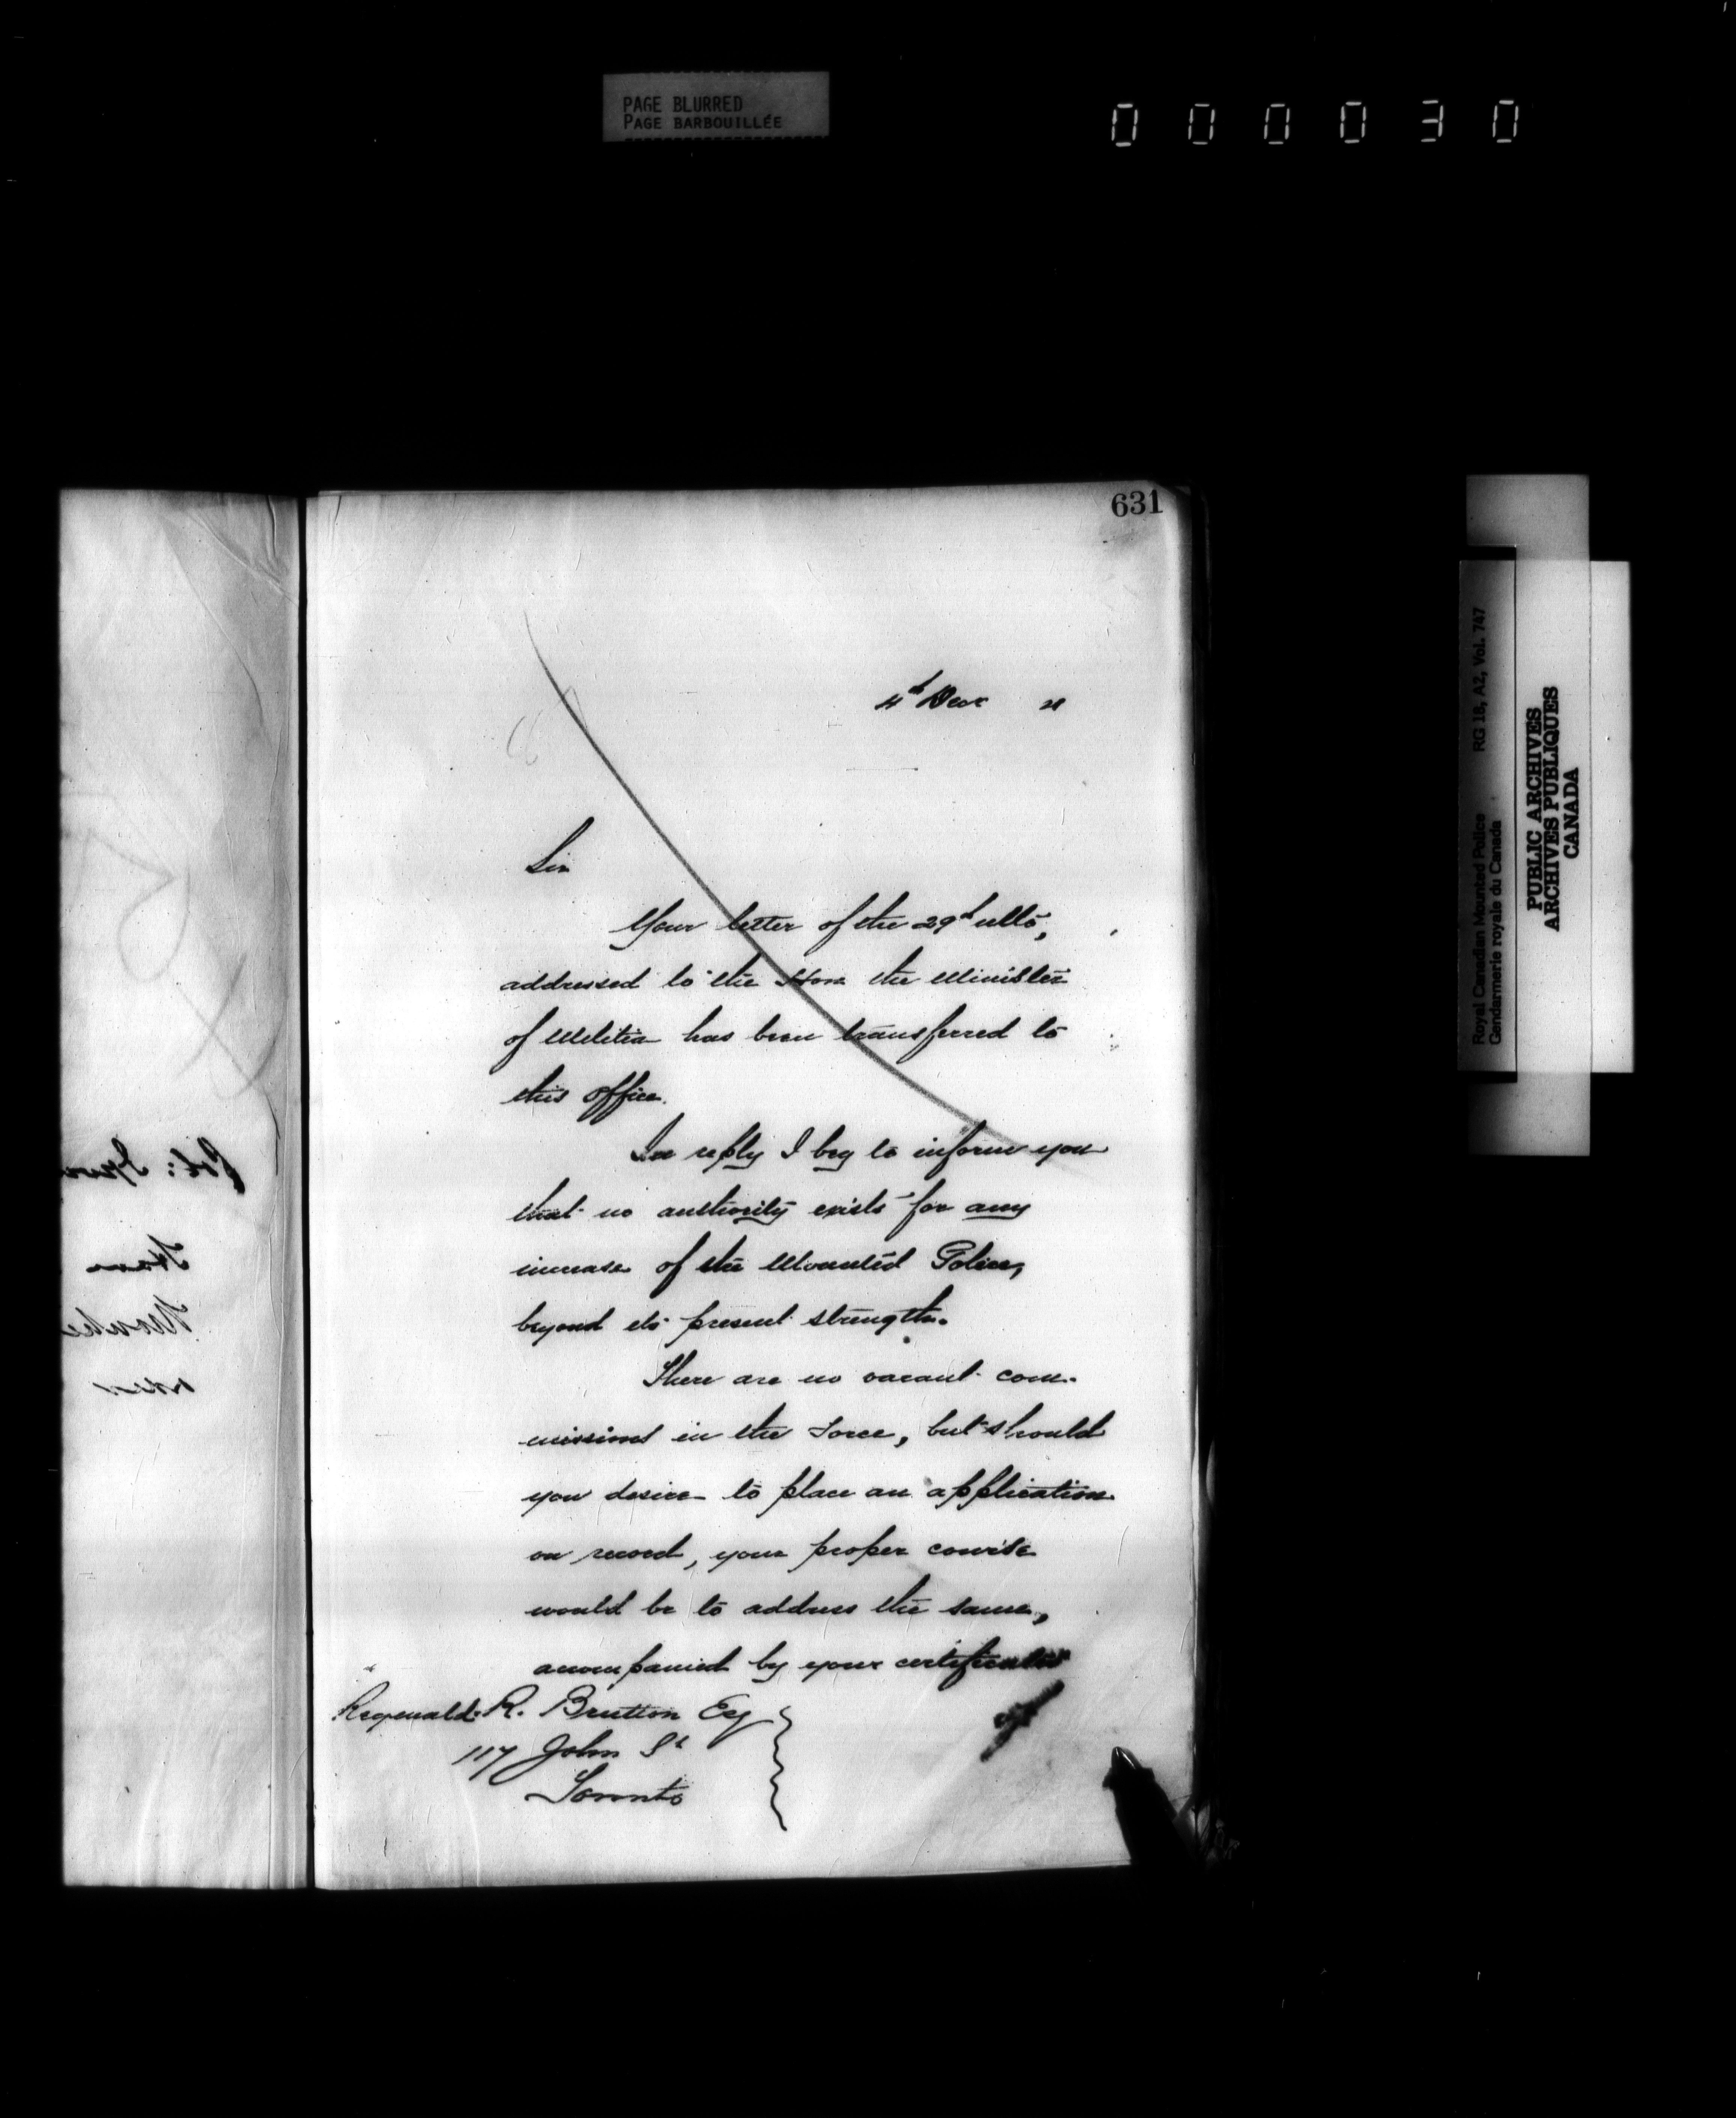 PAGE BLURRED
PAGE BARBOUILLÉE
000030
631
4th Decr
Sir
Your letter of the 29th ulto,
addressed to the Hon the Minister
of Militia has been transferred to
this office.
In reply I beg to inform you
that no authority exists for any
increase of the Mounted Police,
beyond its present strength.
There are no vacant com-
missions in the Force, but should
you desire to place an application
on record, your proper course
would be to address the same,
accompanied by your certificates
Reginald R. Brutton Esq
117 John St
Toronto
Royal Canadian Mounted Police RG 18, A2, Vol. 747
Gendarmerie royale du Canada
PUBLIC ARCHIVES
ARCHIVES PUBLIQUES
CANADA